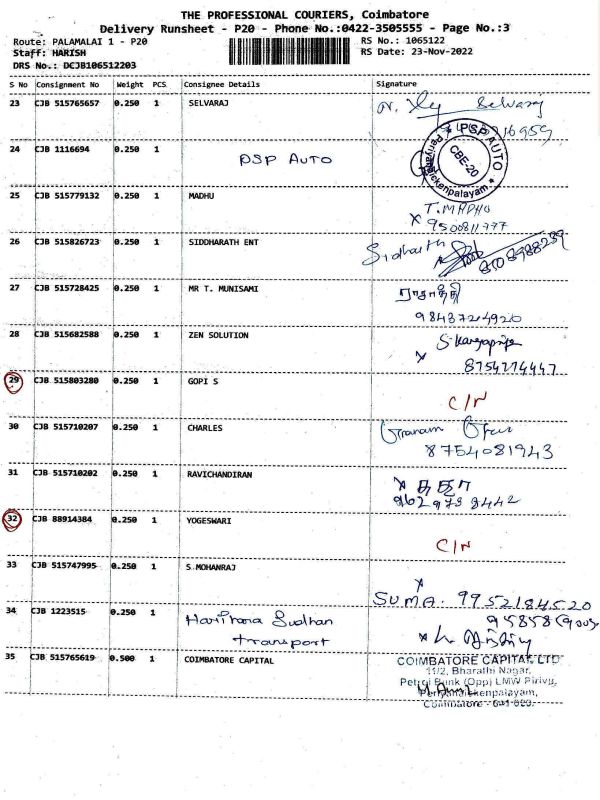 THE PROFESSIONAL COURIERS, Coimbatore
Delivery Runsheet - P20 - Phone No.:0422-3505555 - Page No.:3
Route: PALAMALAI 1 - P20 RS No.: 1065122
Staff: HARISH RS Date: 23-Nov-2022
DRS No.: DCJB106512203
S No Consignment No Weight PCS Consignee Details Signature
23 CJB 515765657 0.250 1 SELVARAJ Selvaraj
24 CJB 1116694 0.250 1 PSP AUTO
PSP AUTO
CBE-20
Periyanaickenpalayam
25 CJB 515779132 0.250 1 MADHU T.MADHU
x 9500811777
26 CJB 515826723 0.250 1 SIDDHARATH ENT Sidharth
8108988239
27 CJB 515728425 0.250 1 MR T. MUNISAMI
9843724920
28 CJB 515682588 0.250 1 ZEN SOLUTION
x 8754774447
29 CJB 515803280 0.250 1 GOPI S C/N
30 CJB 515710207 0.250 1 CHARLES
8754081943
31 CJB 515710202 0.250 1 RAVICHANDIRAN x
962 973 8442
32 CJB 88914384 0.250 1 YOGESWARI C/N
33 CJB 515747995 0.250 1 S MOHANRAJ x
SUMA. 9952184520
34 CJB 1223515 0.250 1 Harihara Sudhan
transport x
35 CJB 515765619 0.500 1 COIMBATORE CAPITAL COIMBATORE CAPITAL LTD
11/2, Bharathi Nagar,
Petrol Bunk (Opp) LMW Pirivu,
Periyanaickenpalayam,
Coimbatore - 641 020.